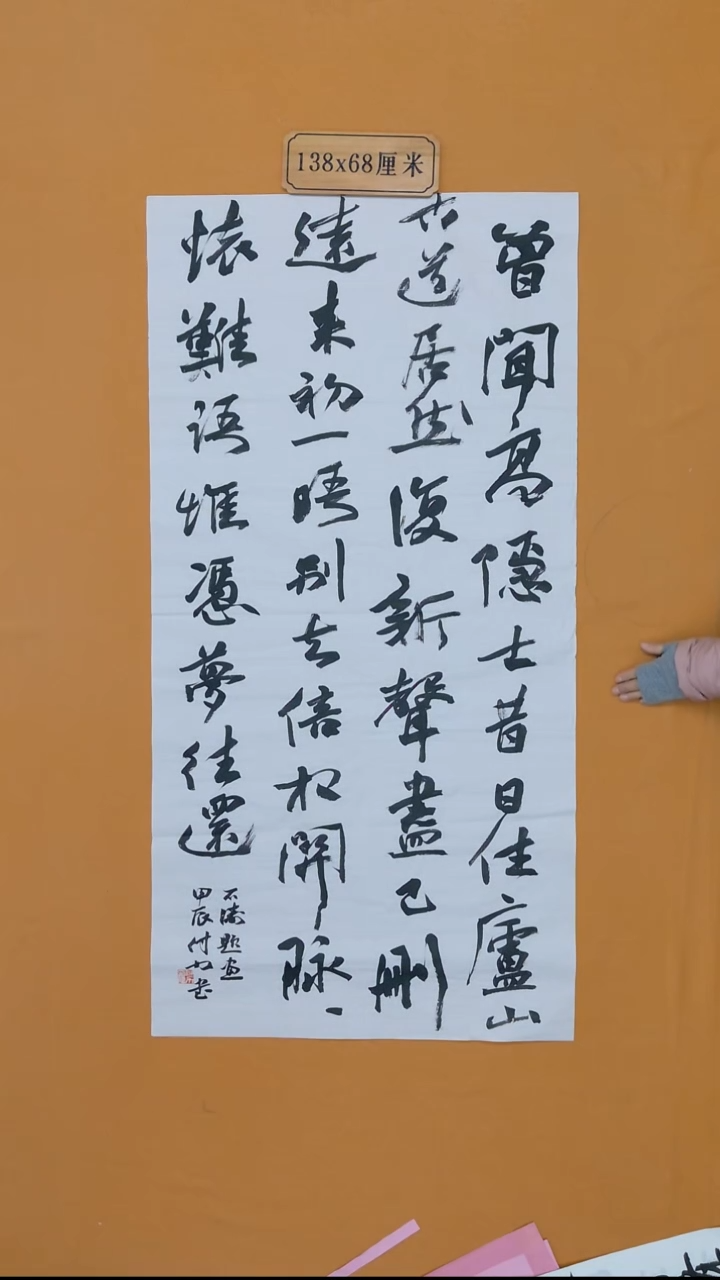 138x68厘米
曾聞高隱士昔日住廬山
古道居然復新聲盡已刪
遠来初一晤別去倍相關脉脉
懷難語惟憑夢往還
石濤題畫
甲辰付
書